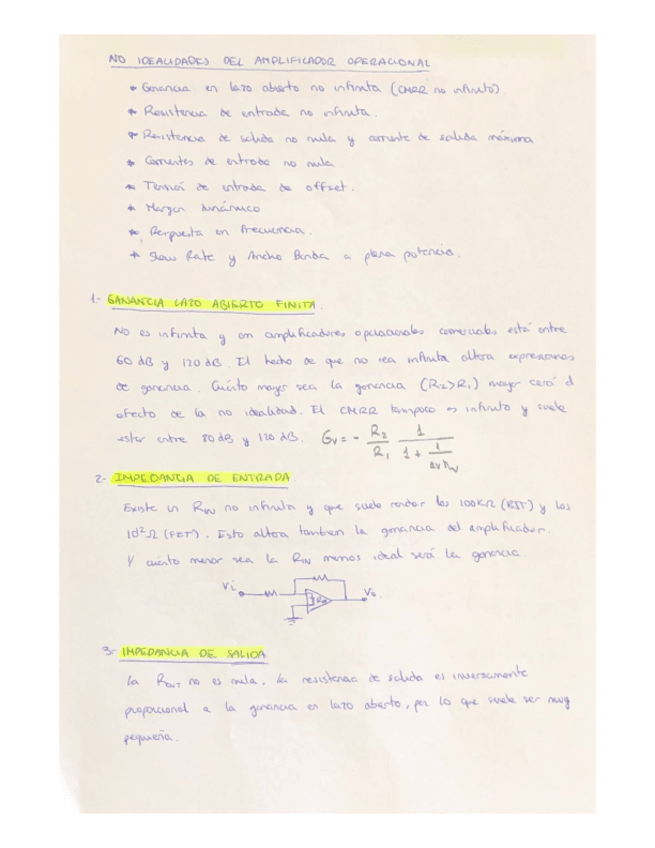 NO IDEALIDADES DEL AMPLIFICADOR OPERACIONAL
* Ganancia en lazo abierto no infinita (CMRR no infinito)
* Resistencia de entrada no infinita.
* Resistencia de salida no nula y corriente de salida máxima
* Corrientes de entrada no nula
* Tensión de entrada de offset.
* Margen dinámico
* Respuesta en frecuencia.
* Slew Rate y Ancho Banda a plena potencia.
1.- GANANCIA LAZO ABIERTO FINITA.
No es infinita y en amplificadores operacionales comerciales está entre
60 dB y 120 dB. El hecho de que no sea infinita altera expresiones
de ganancia. Cuánto mayor sea la ganancia (R2>R1) mayor será el
efecto de la no idealidad. El CMRR tampoco es infinito y suele
estar entre 80 dB y 120 dB. Gv = - R2/R1 1/(1 + 1/
2- IMPEDANCIA DE ENTRADA.
Existe un RIN no infinita y que suele rondar los 100KΩ (BJT) y los
10^12 Ω (FET). Esto altera tambien la ganancia del amplificador.
Y cuánto menor sea la RIN menos ideal será la ganancia.
Vi
Vo
3- IMPEDANCIA DE SALIDA
La ROUT no es nula. La resistencia de salida es inversamente
proporcional a la ganancia en lazo abierto, por lo que suele ser muy
pequeña.